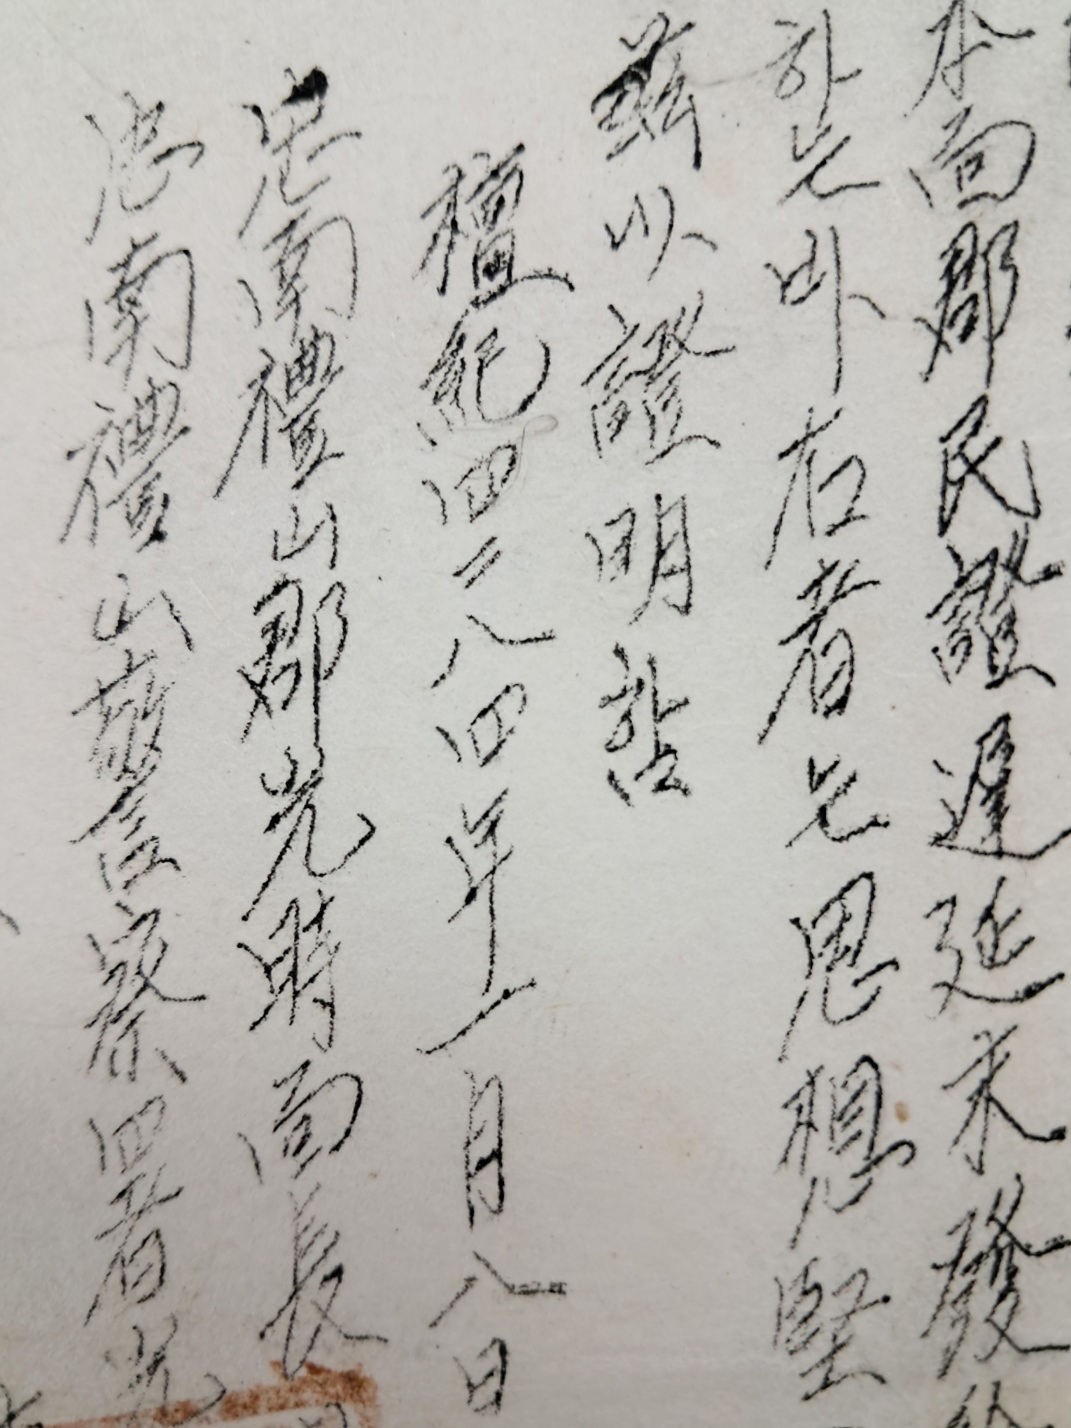 本面郡民證遲延未發
하온바 右者는 思想堅
玆以證明함
檀紀四二八四年一月八日
忠南禮山郡光時面長
忠南禮山警察署光